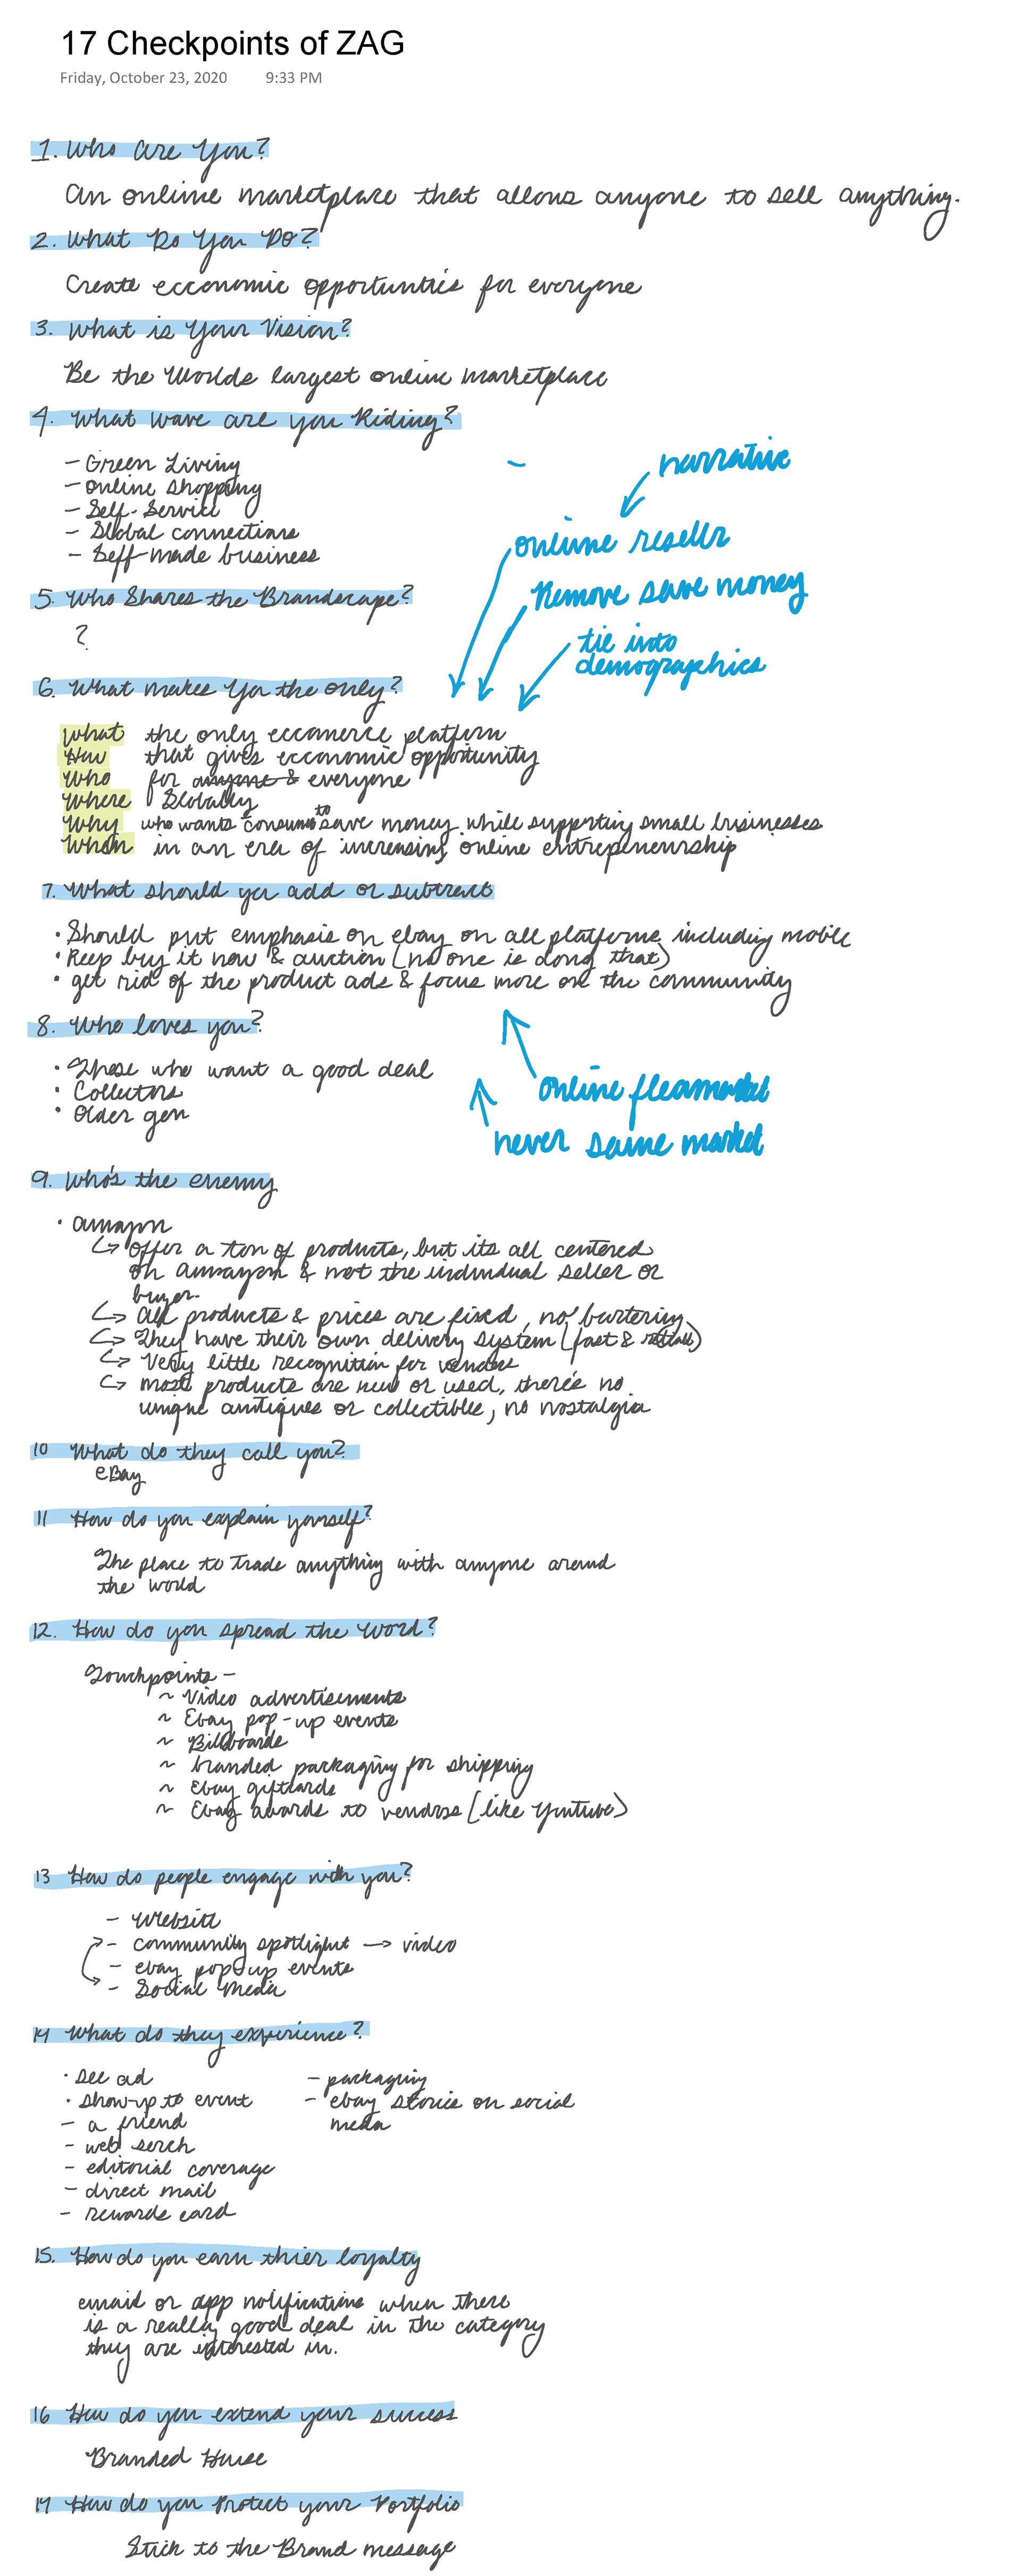 17 Checkpoints of ZAG
Friday, October 23, 2020 9:33 PM
1. Who are You?
An online marketplace that allows anyone to sell anything.
2. What Do You Do?
Create ecconomic opportunities for everyone
3. What is Your Vision?
Be the Worlds largest online marketplace
4. What wave are you Riding?
- Green Living
- Online Shopping
- Self-Service
- Global connections
- Self-made business
-
narrative
online resellr
Remove save money
tie into
demographics
5. Who Shares the Brandscape?
?
6. What makes you the only?
What the only eccomerce platform
How that gives ecconomic opportunity
Who for anyone & everyone
Where Globally
Why who wants consumers to save money while supporting small businesses
When in an era of increasing online entrepeneurship
7. What should you add or subtract
• Should put emphasis on ebay on all platforms including mobile
• Keep buy it now & auction (no one is doing that)
• get rid of the product ads & focus more on the community
8. Who loves you?
• Those who want a good deal
• Collectors
• Older gen
online fleamarket
never same market
9. Who's the enemy
• amazon
↳ offer a ton of products, but its all centered
on amazon & not the individual seller or
buyer.
↳ All products & prices are fixed, no bartering
↳ They have their own delivery system (fast & )
↳ Very little recognition for vendors
↳ most products are new or used, there's no
unique antiques or collectible, no nostalgia
10 What do they call you?
eBay
11 How do you explain yourself?
The place to Trade anything with anyone around
the world
12. How do you spread the word?
Touchpoints -
~ Video advertisements
~ Ebay pop-up events
~ Billboards
~ branded packaging for shipping
~ Ebay giftcards
~ Ebay awards to vendors (like Youtube)
13 How do people engage with you?
- Website
- community spotlight → video
- ebay pop-up events
- Social Media
14 What do they experience?
• see ad
• show-up to event
- a friend
- web serch
- editorial coverage
- direct mail
- rewards card
- packaging
- ebay stories on social
media
15. How do you earn thier loyalty
email or app notifications when there
is a really good deal in the category
they are interested in.
16 How do you extend your success
Branded House
17 How do you Protect your Portfolio
Stick to the Brand message